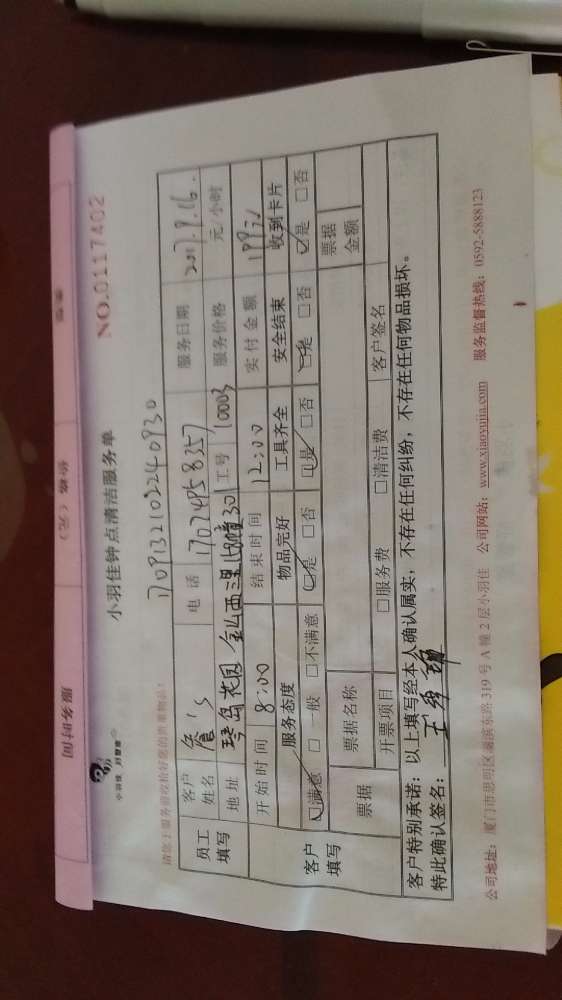 小羽佳钟点清洁服务单
NO.0117402
请您于服务前收拾好您的贵重物品!
17091321022240930
员工填写 客户姓名 詹's 电话 17074958357 服务日期 2017.9.16.
地址 琴岛花园 工号 10003 服务价格 元/小时
开始时间 8:00 结束时间 12:00 实付金额
客户填写 服务态度 物品完好 工具齐全 安全结束 收到卡片
☑满意 □一般 □不满意 ☑是 □否 ☑是 □否 ☑是 □否 ☑是 □否
票据 票据名称 票据金额
开票项目 □服务费 □清洁费 客户签名
客户特别承诺:以上填写经本人确认属实,不存在任何纠纷,不存在任何物品损坏。
特此确认签名:
公司地址:厦门市思明区湖滨东路 319 号 A 幢 2 层小羽佳 公司网站:www.xiaoyujia.com 服务监督热线:0592-5888123
服务时间
价格(元)